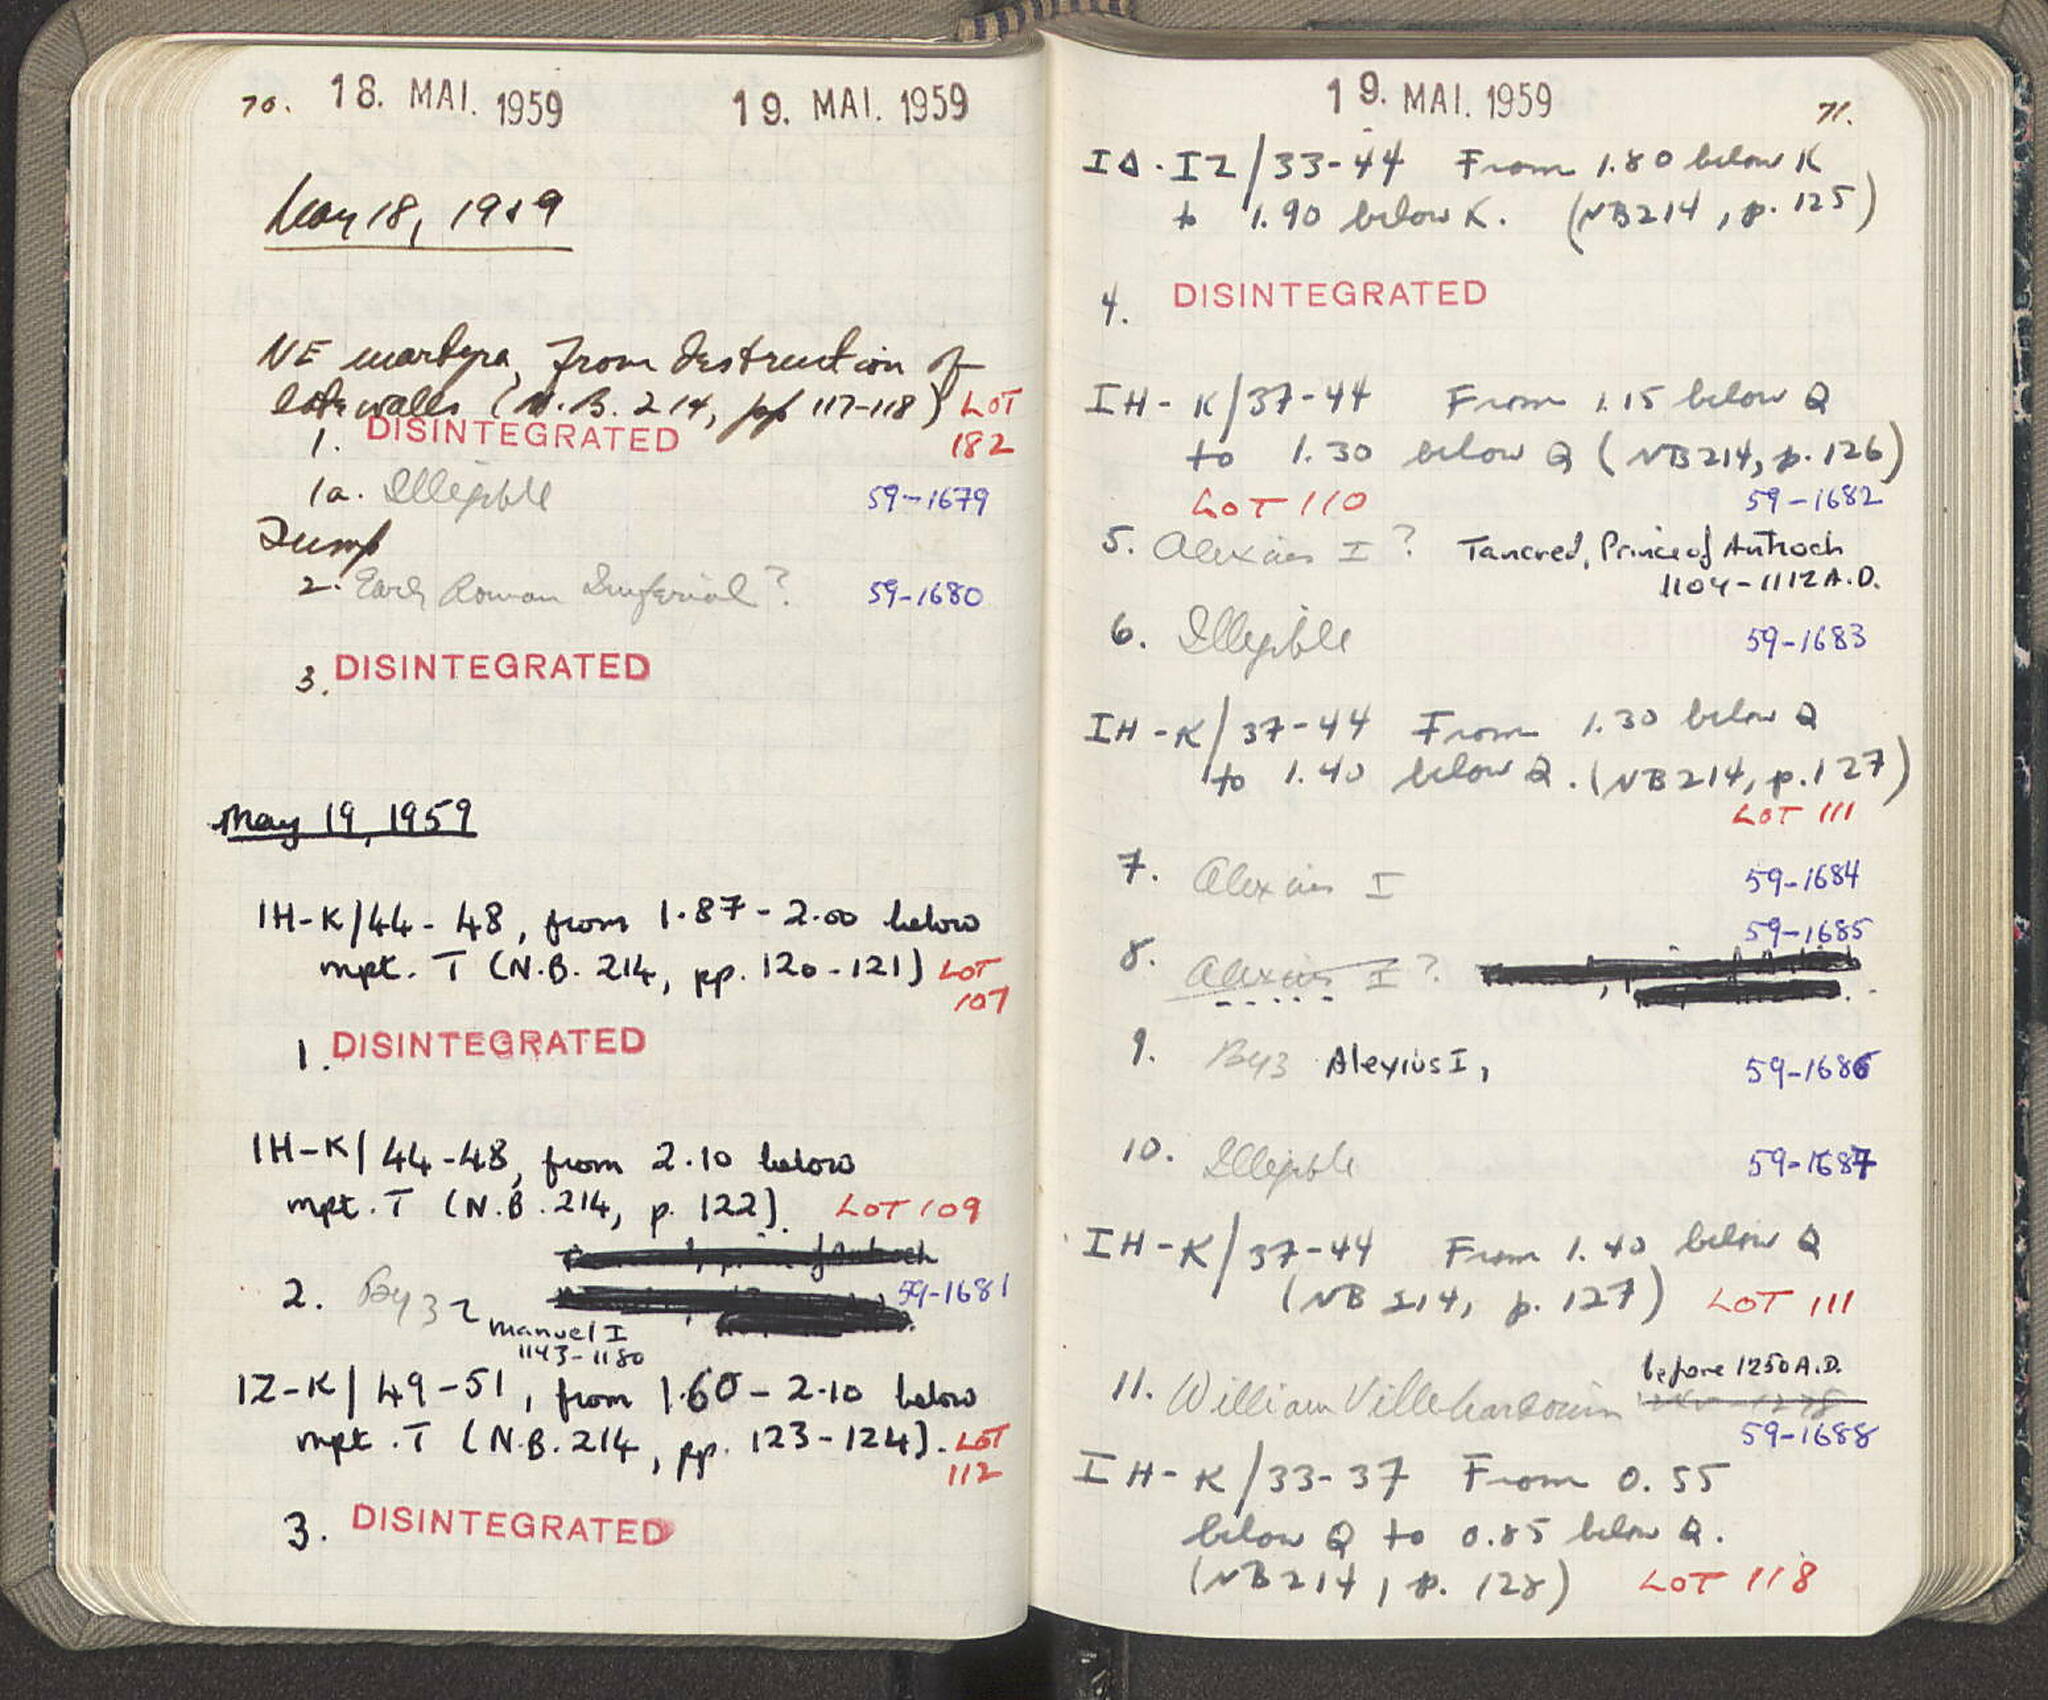 70. 18. MAI. 1959 19. MAI. 1959
May 18, 1959
NE martyra, from destruction of
late walls (N.B. 214, pp 117-118) LOT
182
1. DISINTEGRATED
1a. Illegible 59-1679
Dump
2. Early Roman Imperial? 59-1680
3. DISINTEGRATED
May 19, 1959
IH-K/44-48, from 1.87-2.00 below
mpt. T (N.B. 214, pp. 120-121) LOT
107
1. DISINTEGRATED
IH-K/44-48, from 2.10 below
mpt. T (N.B. 214, p. 122). LOT 109
2. Byz 59-1681
Manuel I
1143-1180
IZ-K/49-51, from 1.60-2.10 below
mpt. T (N.B. 214, pp. 123-124). LOT
112
3. DISINTEGRATED
19. MAI. 1959 71.
IΔ-IZ/33-44 From 1.80 below K
to 1.90 below K. (NB 214, p. 125)
4. DISINTEGRATED
IH-K/37-44 From 1.15 below Q
to 1.30 below Q (NB 214, p. 126)
LOT 110 59-1682
5. Alexius I? Tancred, Prince of Antioch
1104-1112 A.D.
6. Illegible 59-1683
IH-K/37-44 From 1.30 below Q
to 1.40 below Q. (NB 214, p. 127)
LOT 111
7. Alexius I 59-1684
59-1685
8. Alexius I?
9. Byz Alexius I, 59-1686
10. Illegible 59-1687
IH-K/37-44 From 1.40 below Q
(NB 214, p. 127) LOT 111
before 1250 A.D.
11. William Villehardouin
59-1688
IH-K/33-37 From 0.55
below Q to 0.85 below Q.
(NB 214, p. 128) LOT 118